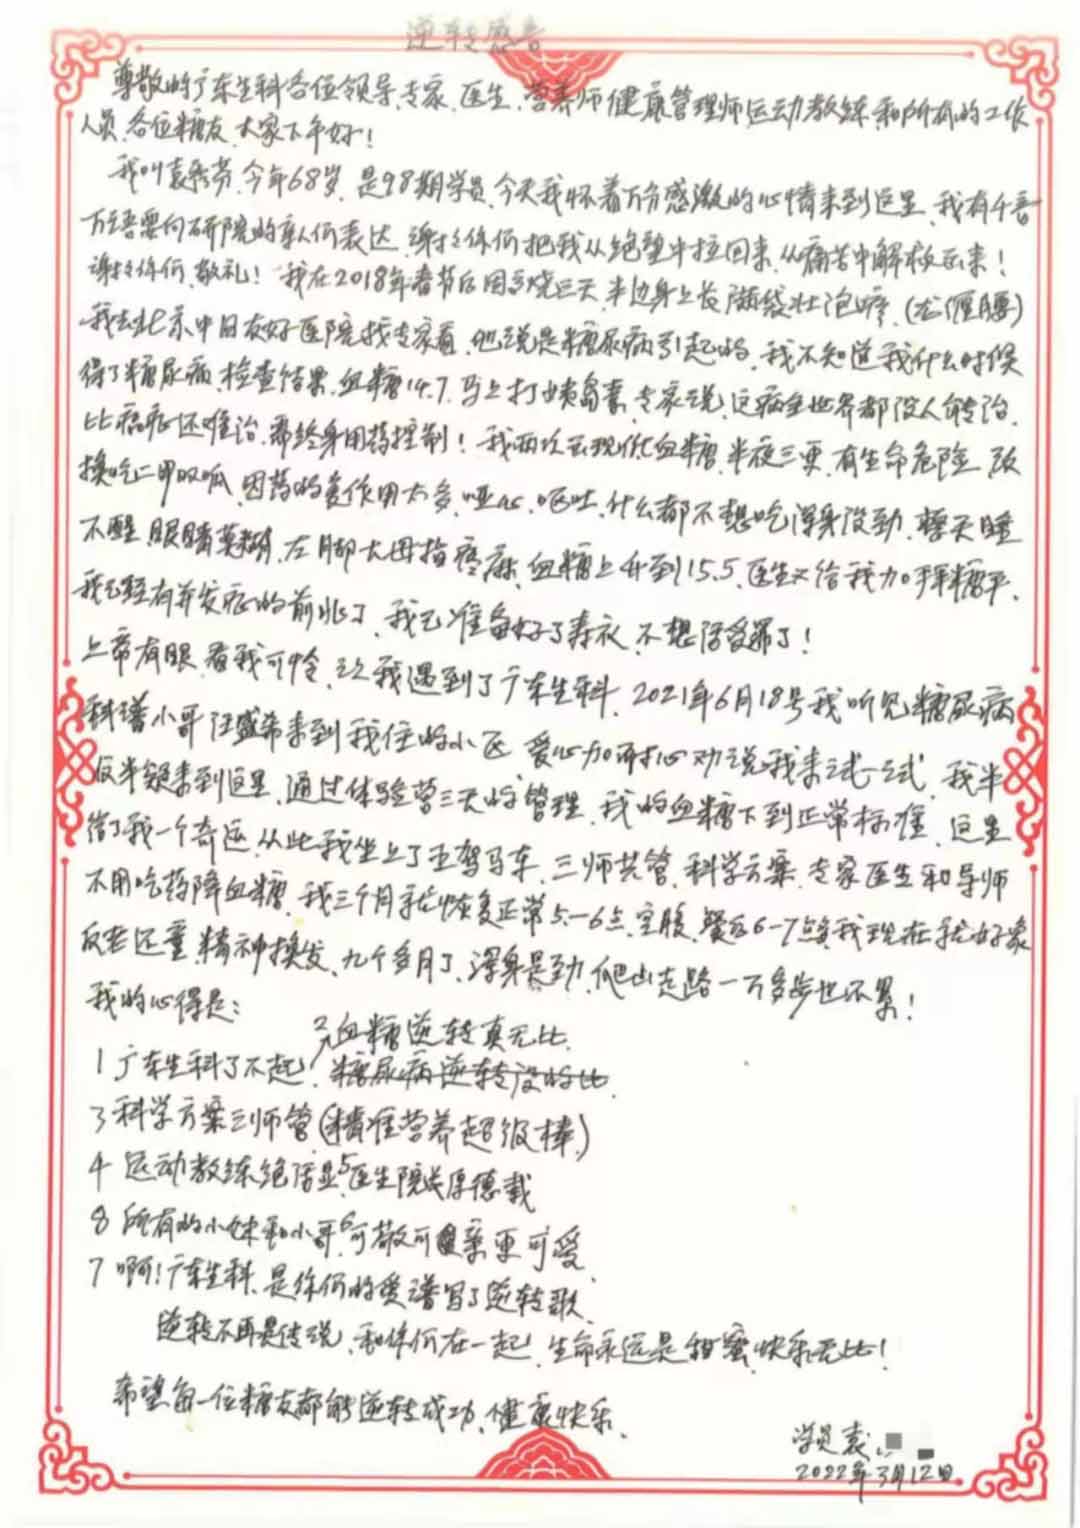 逆转感言
尊敬的广东生科各位领导、专家、医生、营养师健康管理师运动教练和所有的工作
人员、各位糖友、大家下午好!
我叫袁秀芬、今年68岁、是98期学员、今天我怀着万分感激的心情来到这里、我有千言
万语要向研院的亲人们表达、谢谢你们把我从绝望中拉回来、从痛苦中解救出来!
谢谢你们、敬礼! 我在2018年春节后因高烧三天、半边身上长满袋壮泡疹、(龙缠腰)
我去北京中日友好医院找专家看、他说是糖尿病引起的、我不知道我什么时候
得了糖尿病、检查结果、血糖14.7、马上打胰岛素、专家说、这病全世界都没人能治、
比癌症还难治、需终身用药控制! 我两次出现低血糖、半夜三更、有生命危险、改
换吃二甲双呱、因药的负作用太多、恶心、呕吐、什么都不想吃浑身没劲、整天睡
不醒、眼睛莫糊、左脚大母指疼麻、血糖上升到15.5、医生又给我加拜糖平、
我已经有并发症的前兆了、我已准备好了寿衣、不想活受罪了!
上帝有眼、看我可怜、让我遇到了广东生科、2021年6月18号我听见糖尿病
科谱小哥汪盛希来到我住的小区 爱心加耐心劝说我来试一试、我半
信半疑来到这里、通过体验营三天的管理、我的血糖下到正常标准、这里
给了我一个奇迹、从此我坐上了五驾马车、三师共管、科学方案、专家医生和导师
不用吃药降血糖、我三个月就恢复正常5.-6点、空腹、餐后6-7点、我现在就好象
反老还童、精神换发、九个多月了、浑身是劲、爬山走路一万多步也不累!
我的心得是:
2血糖逆转真无比、
1广东生科了不起! 糖尿病逆转没的比
3科学方案三师管(精准营养超级棒)
4 运动教练绝活显、5医生院长厚德载
8 所有的小妹和小哥、6可敬可亲更可爱、
7 啊!广东生科、是你们的爱谱写了逆转歌、
逆转不再是传说、和你们在一起、生命永远是甜蜜、快乐无比!
希望每一位糖友都能逆转成功、健康快乐、
学员袁
2022年3月12日